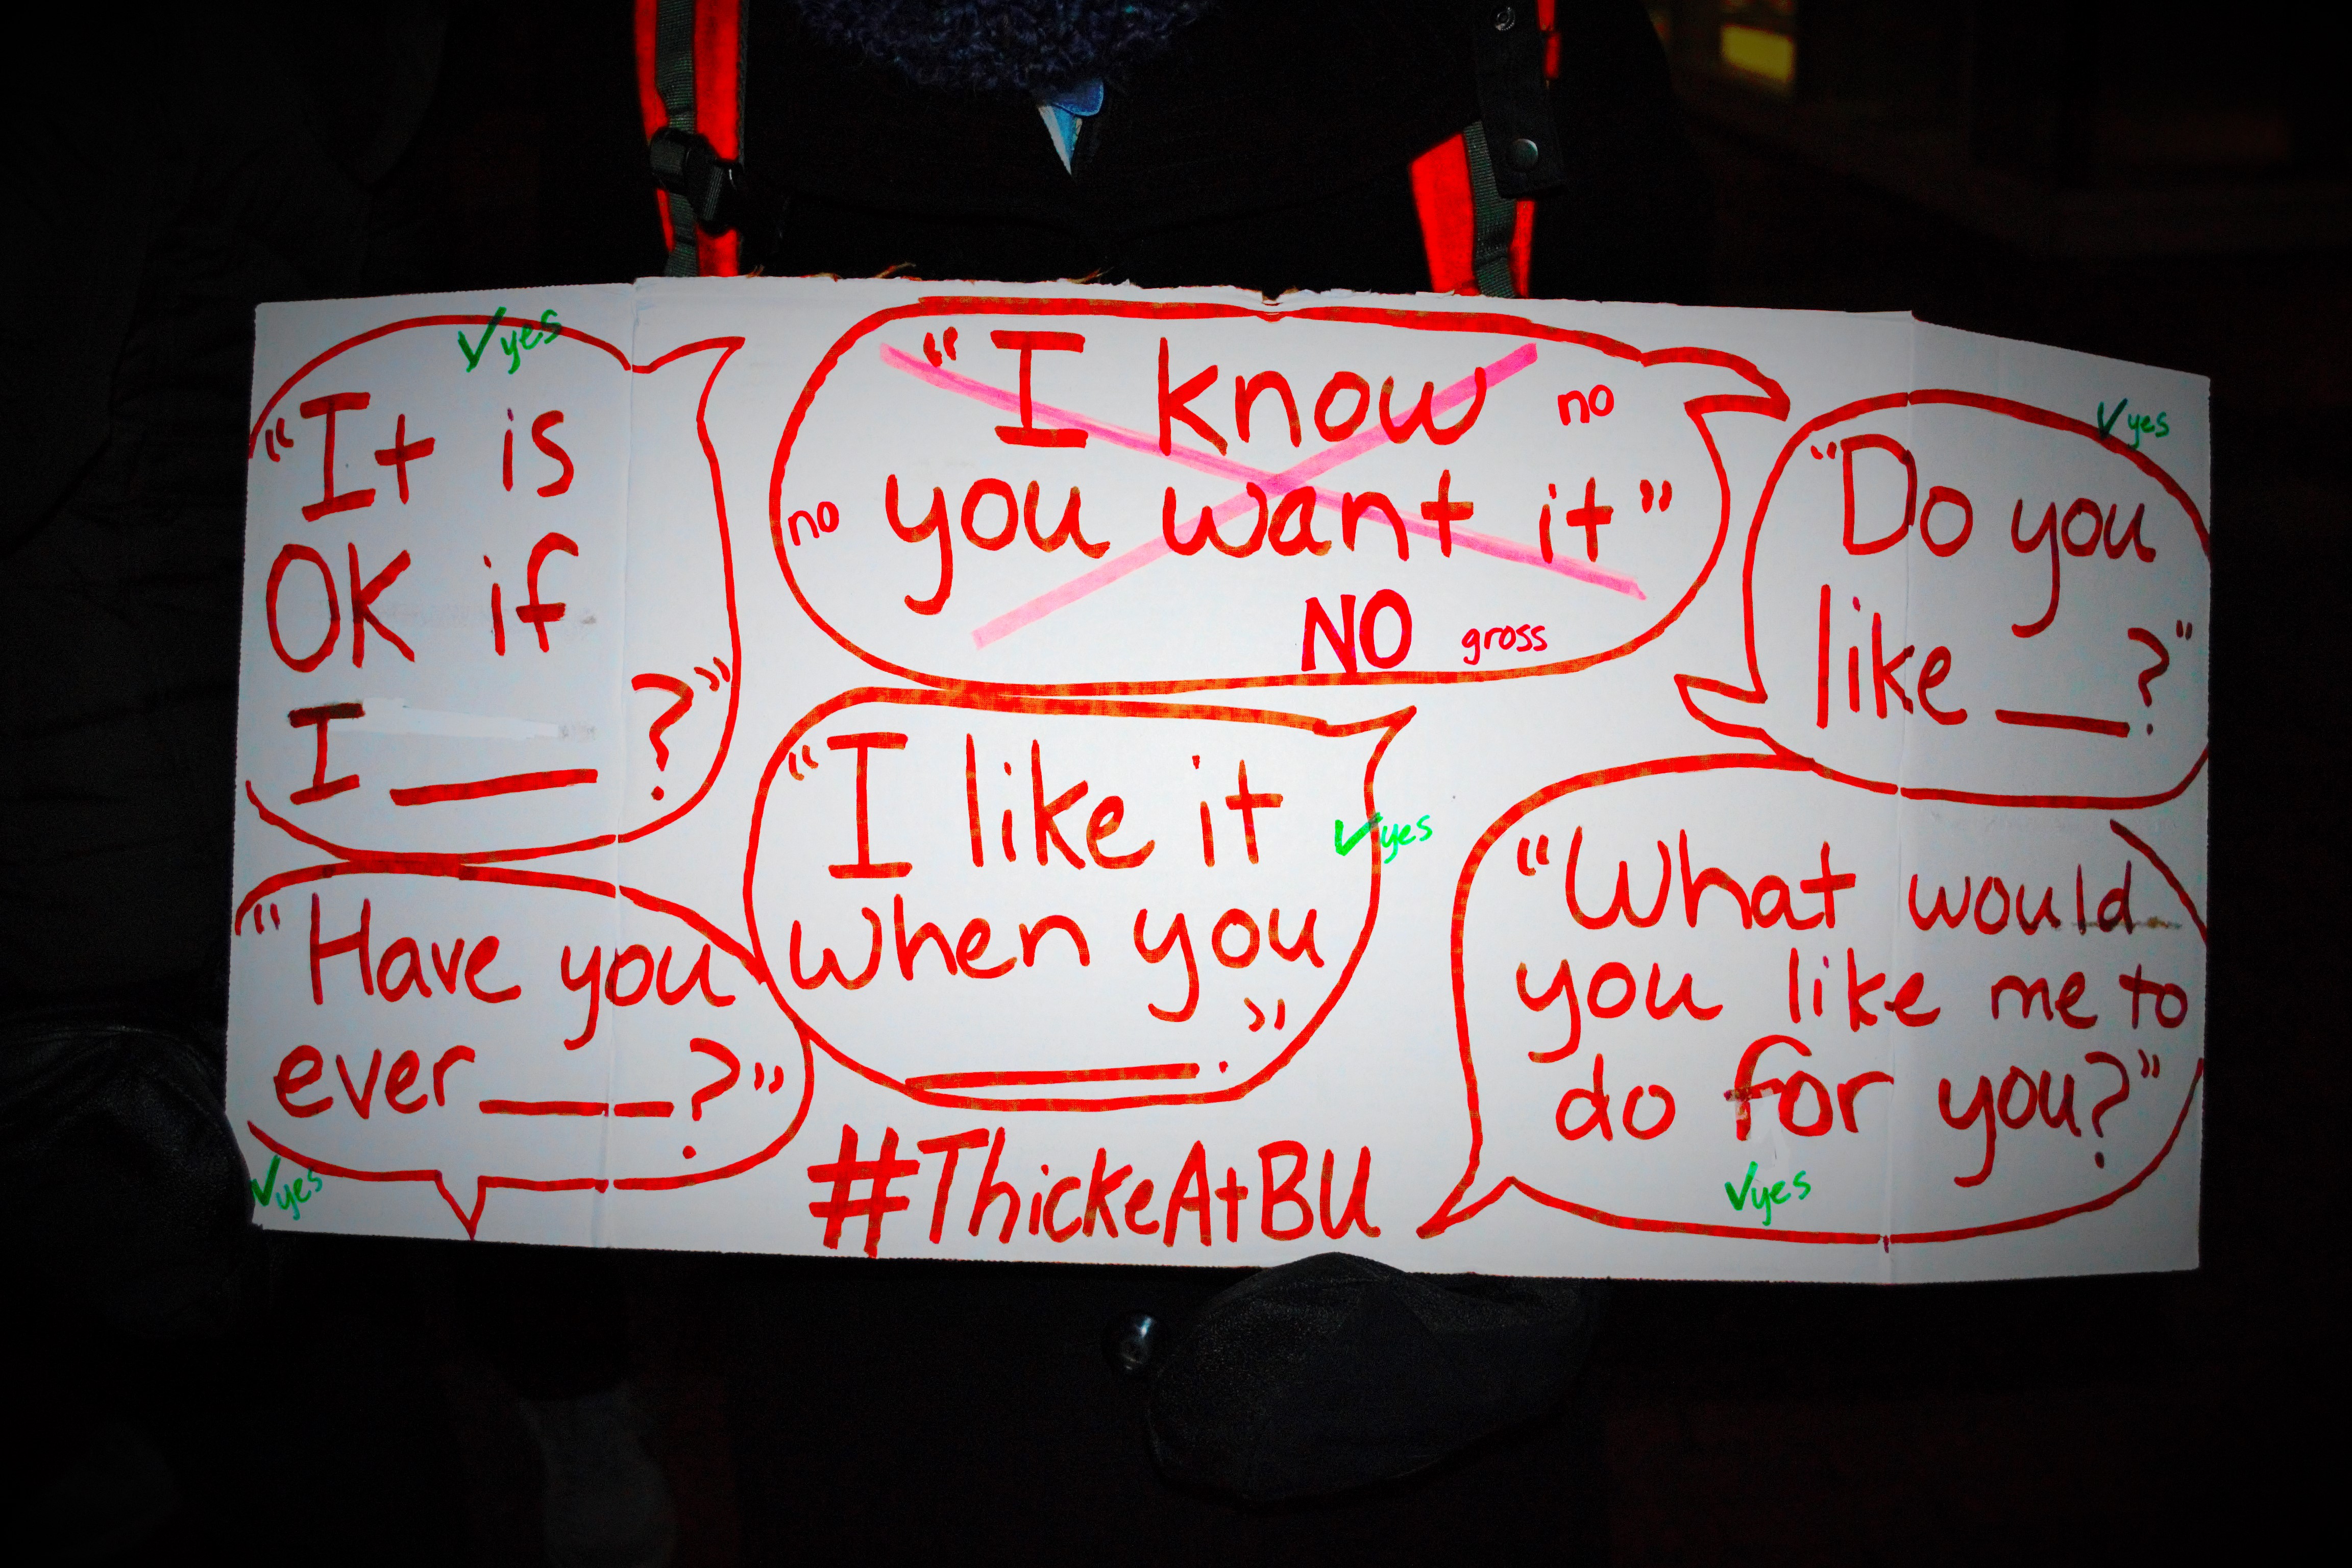 ✓yes
"It is
OK if
I ____?"
"I know
no
no
you want it"
NO gross
✓yes
"Do you
like __?"
"I like it
when you
____."
✓yes
"Have you
ever ____?"
✓yes
"What would
you like me to
do for you?"
✓yes
#ThickeAtBU